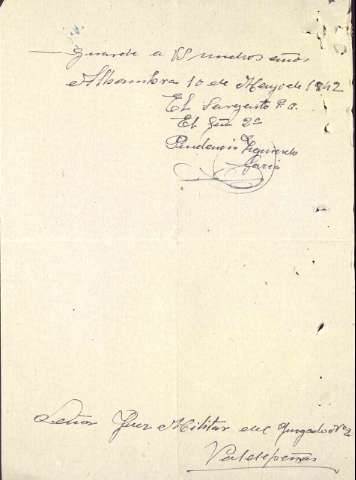 guarde a V muchos años
Alhambra 10 de Mayo de 1942
El Sargento P.O.
El Gua 2º
Prudencio Izquierdo
Señor Juez Militar del Juzgado Nº 2
Valdepeñas